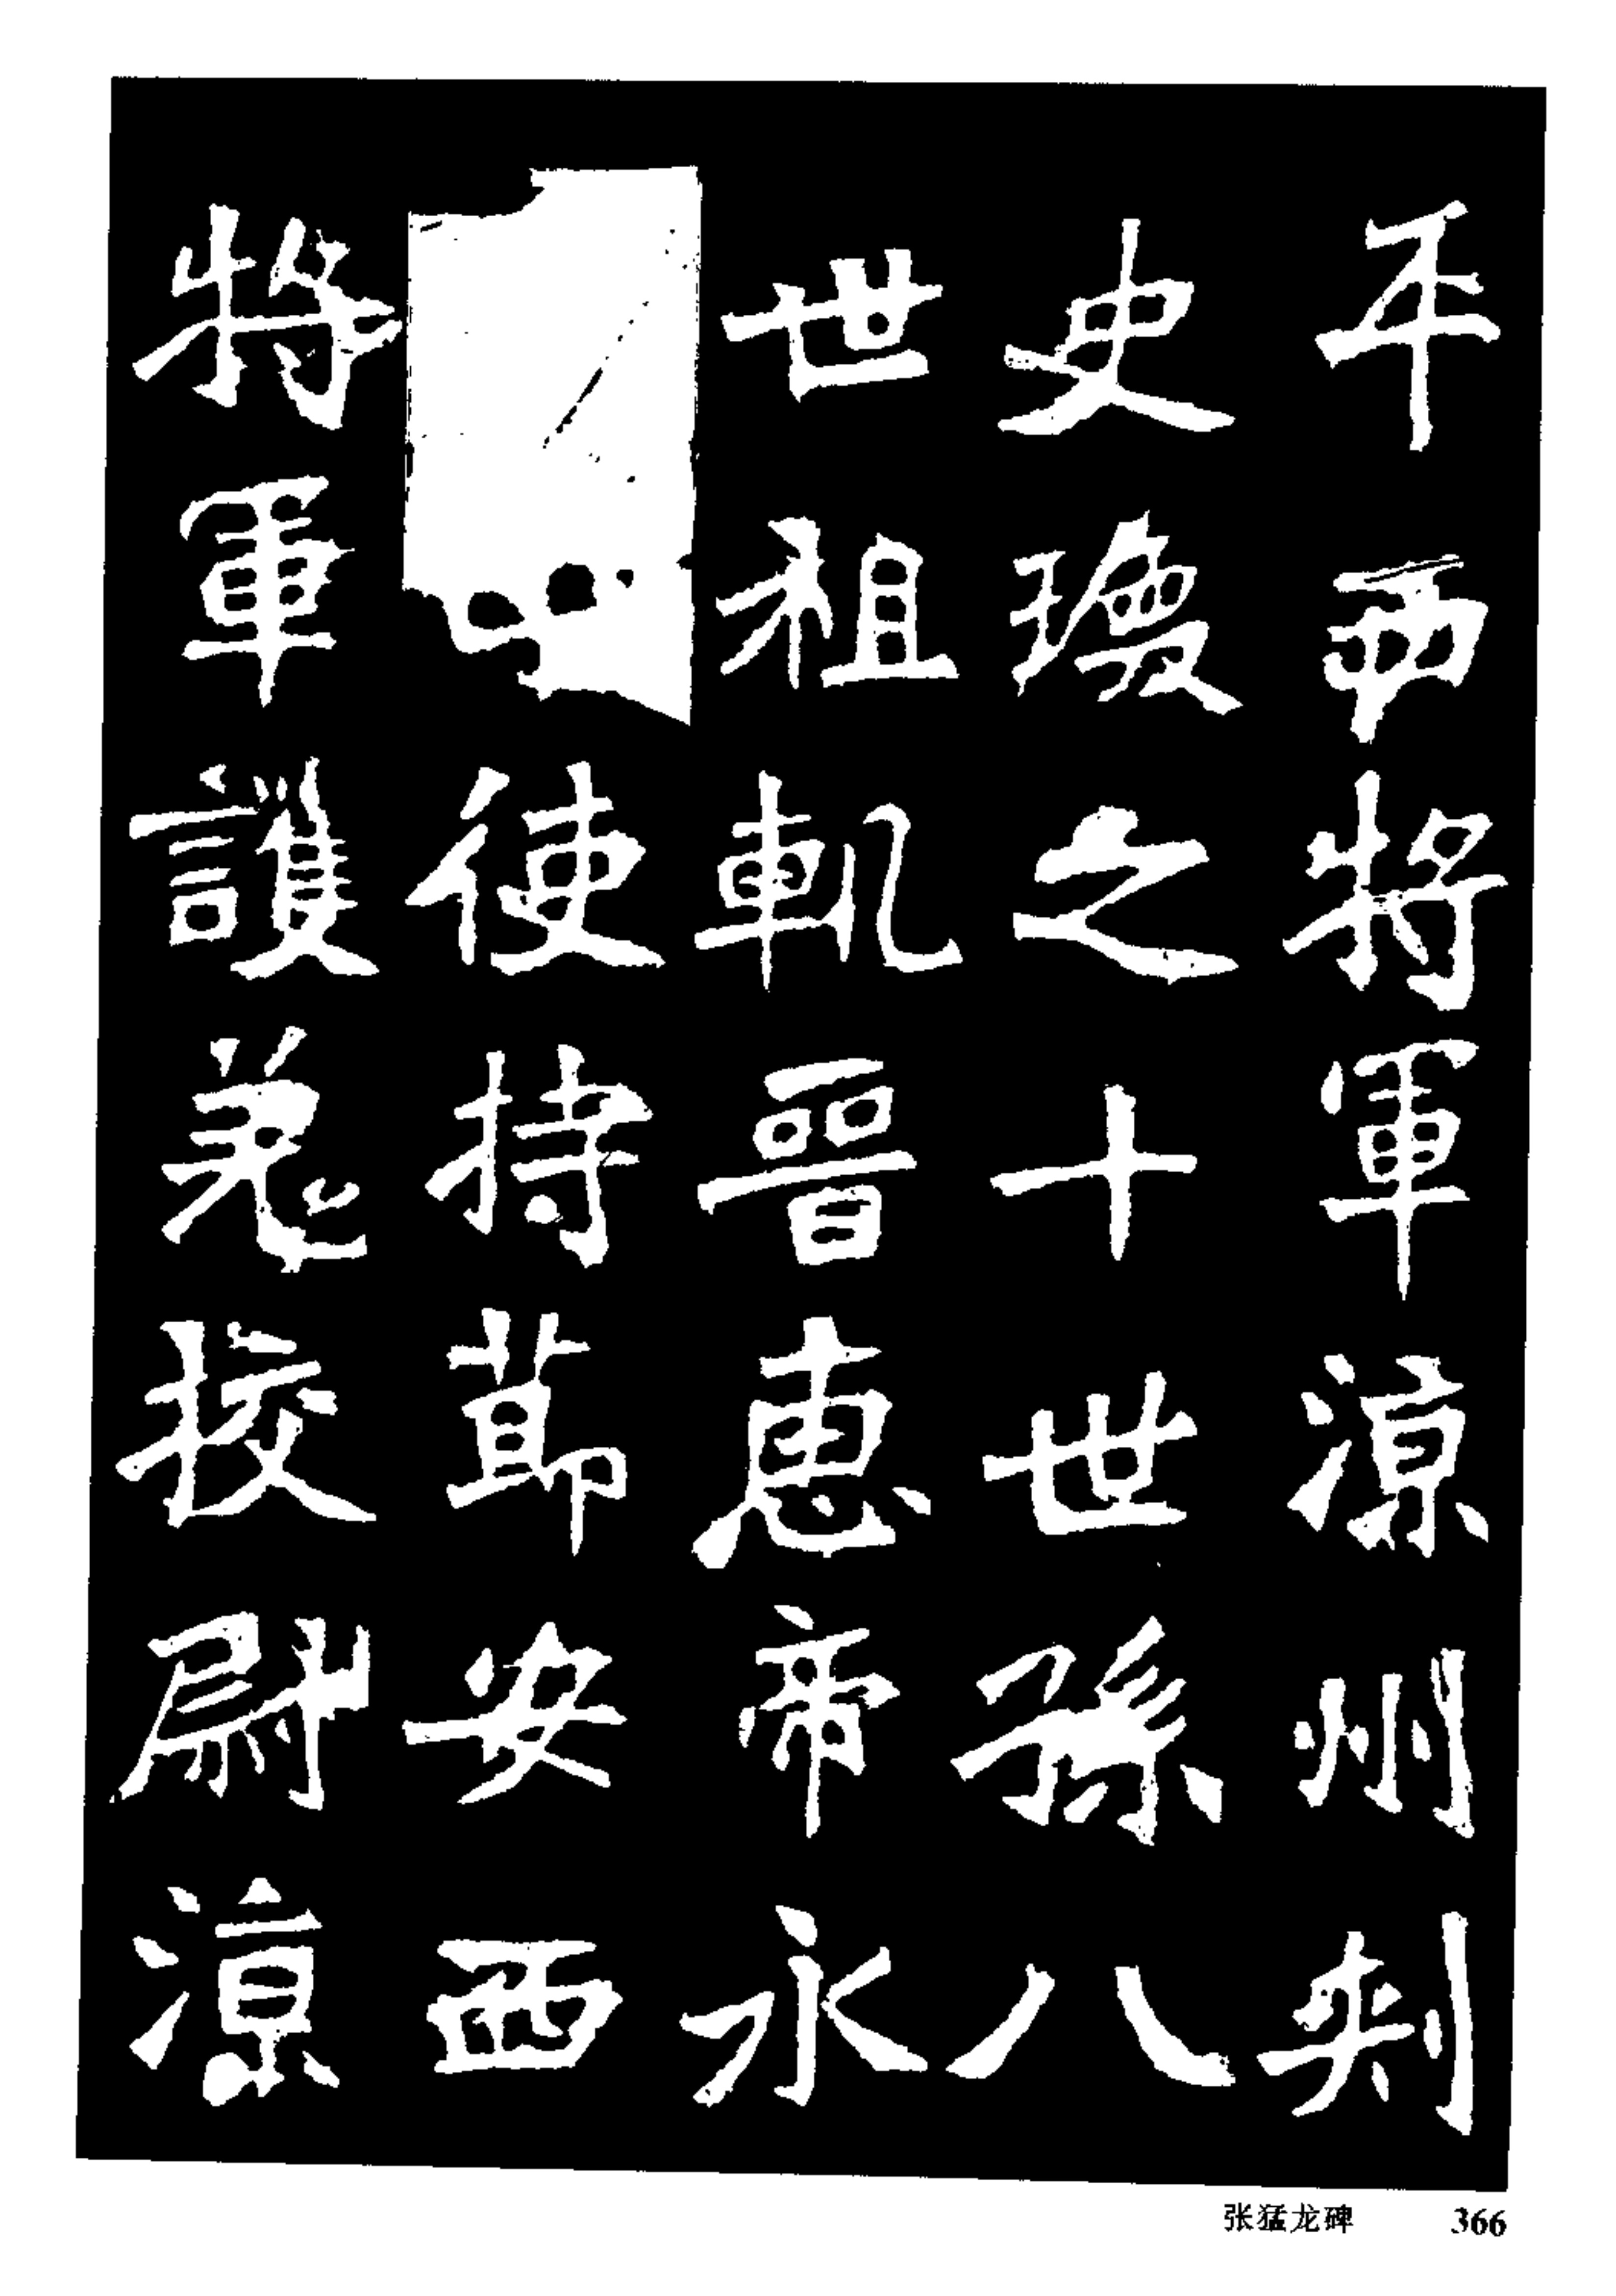 平西將軍涼州刾
史瓊之十世孫八
世祖軌晋惠帝永
使持節安西
將軍護羌挍尉涼
张猛龙碑 366